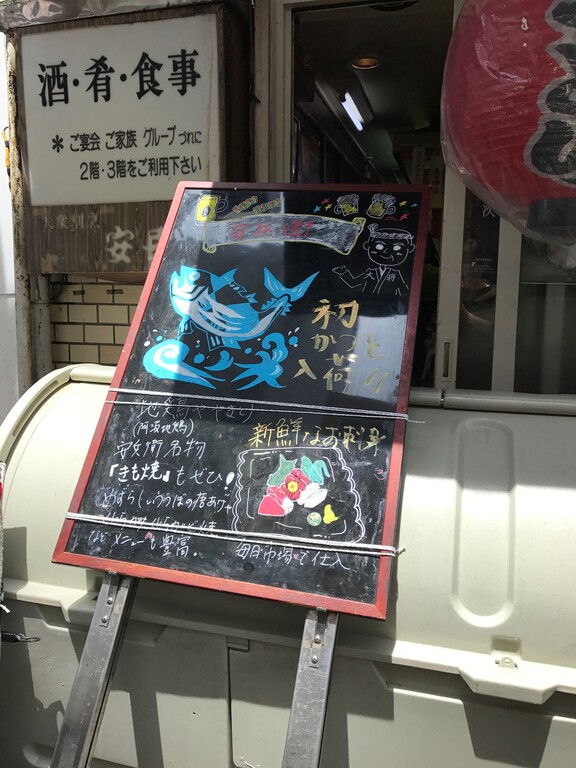 酒・肴・食事
＊ご宴会 ご家族 グループづれに
2階・3階をご利用下さい
安兵
安兵衛
初
かつお
入荷
地鶏
(阿波地鶏)
安兵衛名物
「きも焼」もぜひ!
めずらしいうつぼの唐あげ
など メニューも豊富.
新鮮なお刺身
毎日市場で仕入